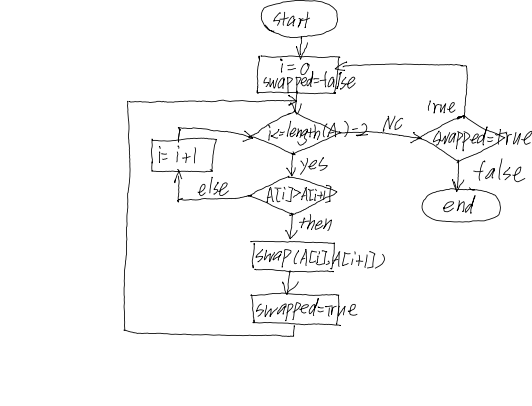 start
i=0
swapped=false
i<=length(A)-2
NO
True
swapped=true
i=i+1
yes
false
else
A[i]>A[i+1]
end
then
swap(A[i],A[i+1])
swapped=true